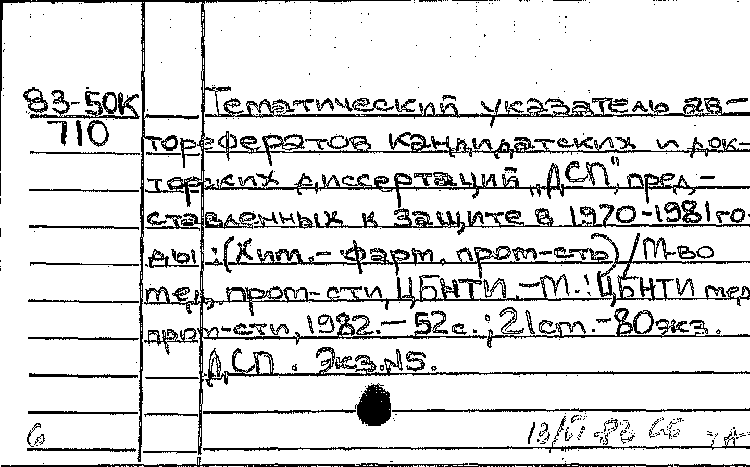 83-50К Тематический указатель ав-
710 торефератов кандидатских и док-
торских диссертаций „ДСП", пред-
ставленных к защите в 1970-1981го-
ды :(Хим.- фарм. пром-сть)/М-во
мед. пром-сти, ЦБНТИ.-М.:ЦБНТИ мед
пром-сти, 1982.-52с.;21см.-80экз.
ДСП. Экз.N5.
6 13/VI-83